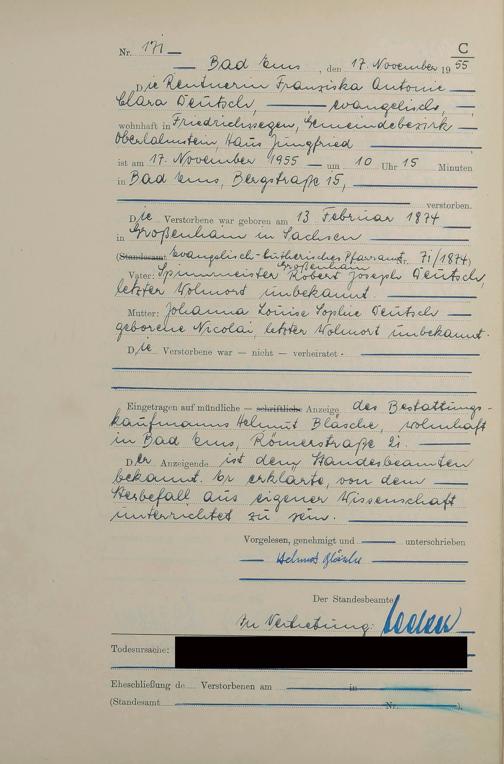 C
Nr. 171
Bad Ems, den 17. November 1955
Die Rentnerin Franziska Antonie
Clara Deutsch, evangelisch,
wohnhaft in Friedrichssegen, Gemeindebezirk
Oberlahnstein, Haus Jungfried
ist am 17. November 1955 um 10 Uhr 15 Minuten
in Bad Ems, Bergstraße 15,
verstorben.
Die Verstorbene war geboren am 13 Februar 1874
in Großenhain in Sachsen
(Standesamt Evangelisch-Lutherisches Pfarramt Nr. 71/1874)
Großenhain
Vater: Spinnmeister Robert Joseph Deutsch,
letzter Wohnort unbekannt.
Mutter: Johanna Louise Sophie Deutsch
geborene Nicolai, letzter Wohnort unbekannt.
Die Verstorbene war — nicht — verheiratet
Eingetragen auf mündliche — schriftliche Anzeige des Bestattungs-
kaufmanns Helmut Bläsche, wohnhaft
in Bad Ems, Römerstraße 21.
Der Anzeigende ist dem Standesbeamten
bekannt. Er erklärte, von dem
Sterbefall aus eigener Wissenschaft
unterrichtet zu sein.
Vorgelesen, genehmigt und unterschrieben
Helmut Bläsche
Der Standesbeamte
In Vertretung:
Todesursache:
Eheschließung de Verstorbenen am in
(Standesamt Nr. ).